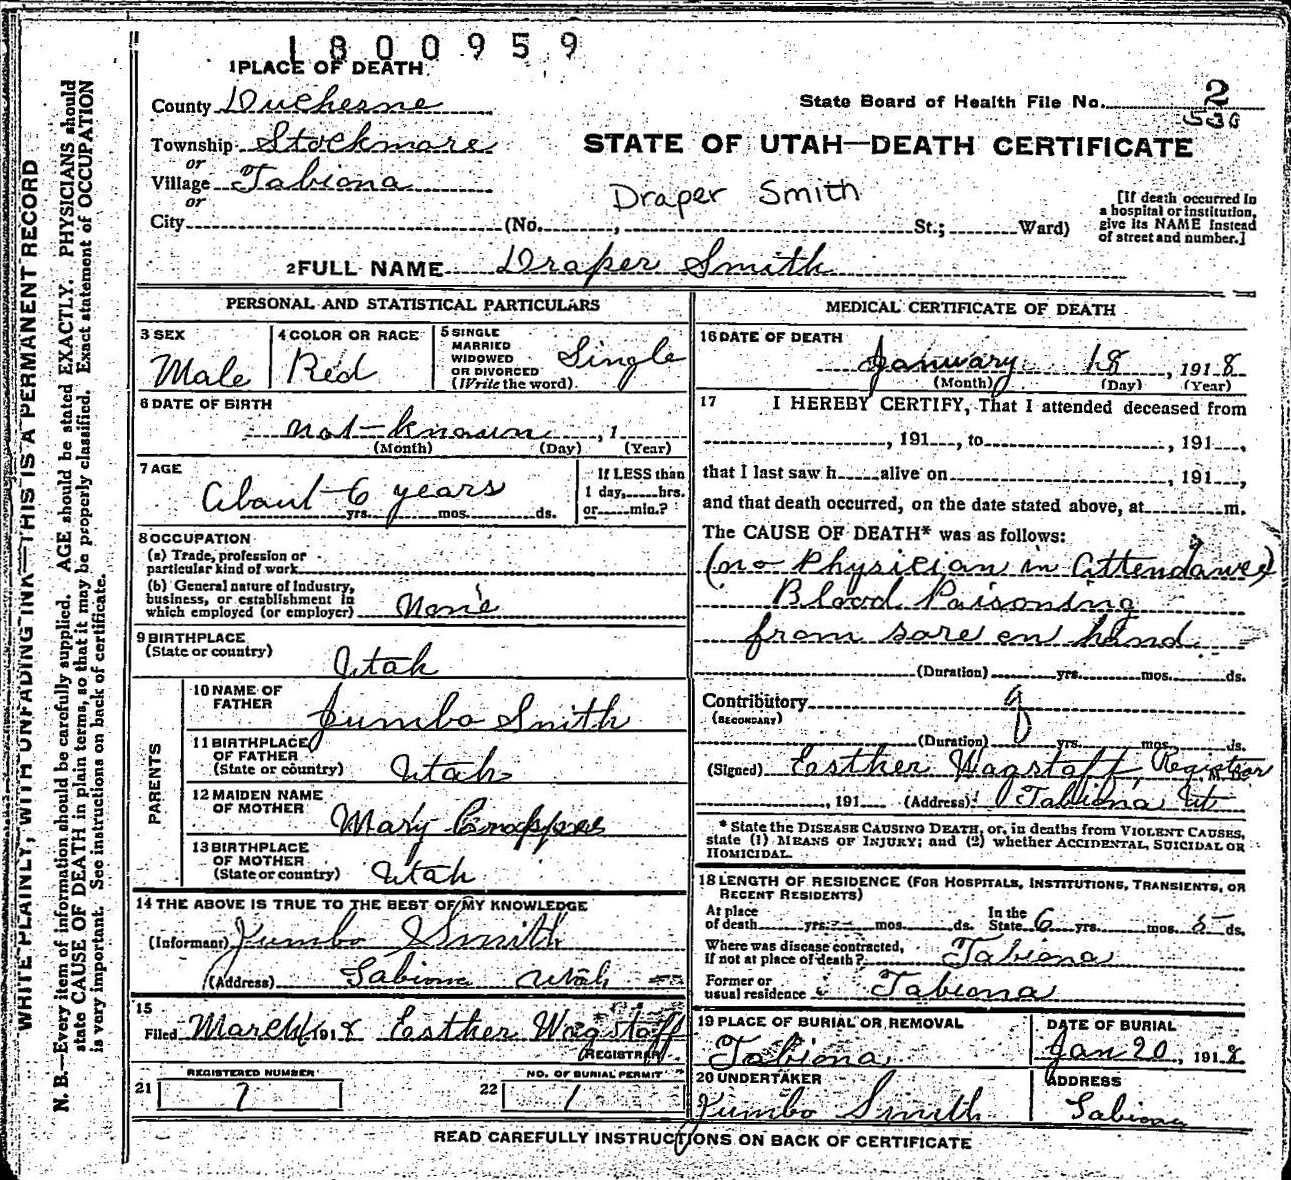 1800959
1 PLACE OF DEATH
County Duchesne
State Board of Health File No. 2
530
Township Stockmore
STATE OF UTAH—DEATH CERTIFICATE
or
Village Tabiona
or
Draper Smith
City (No. , St.; Ward)
[If death occurred in
a hospital or institution,
give its NAME instead
of street and number.]
2 FULL NAME Draper Smith
PERSONAL AND STATISTICAL PARTICULARS
3 SEX
Male
4 COLOR OR RACE
Red
5 SINGLE
MARRIED
WIDOWED
OR DIVORCED
(Write the word)
Single
6 DATE OF BIRTH
not-known , 1
(Month) (Day) (Year)
7 AGE
About 6 years
yrs. mos. ds.
If LESS than
1 day, hrs.
or min.?
8 OCCUPATION
(a) Trade, profession or
particular kind of work
(b) General nature of Industry,
business, or establishment in
which employed (or employer) None
9 BIRTHPLACE
(State or country)
Utah
PARENTS
10 NAME OF
FATHER
Jumbo Smith
11 BIRTHPLACE
OF FATHER
(State or country) Utah
12 MAIDEN NAME
OF MOTHER
Mary
13 BIRTHPLACE
OF MOTHER
(State or country) Utah
14 THE ABOVE IS TRUE TO THE BEST OF MY KNOWLEDGE
(Informant) Jumbo Smith
(Address) Tabiona Utah
15
Filed March 1918 Esther Wagstaff
REGISTRAR
21 REGISTERED NUMBER
7
22 NO. OF BURIAL PERMIT
1
MEDICAL CERTIFICATE OF DEATH
16 DATE OF DEATH
January 18, 1918
(Month) (Day) (Year)
17 I HEREBY CERTIFY, That I attended deceased from
, 191 , to , 191 ,
that I last saw h alive on , 191 ,
and that death occurred, on the date stated above, at m.
The CAUSE OF DEATH* was as follows:
(no Physician in Attendance)
Blood Poisoning
from sore on hand
(Duration) yrs. mos. ds.
Contributory
(SECONDARY)
(Duration) yrs. mos. ds.
(Signed) Esther Wagstaff, Registrar
, 191 (Address) Tabiona Ut
* State the DISEASE CAUSING DEATH, or, in deaths from VIOLENT CAUSES,
state (1) MEANS OF INJURY; and (2) whether ACCIDENTAL, SUICIDAL OR
HOMICIDAL.
18 LENGTH OF RESIDENCE (FOR HOSPITALS, INSTITUTIONS, TRANSIENTS, OR
RECENT RESIDENTS)
At place
of death yrs. mos. ds.
In the
State 6 yrs. mos. 5 ds.
Where was disease contracted,
if not at place of death? Tabiona
Former or
usual residence Tabiona
19 PLACE OF BURIAL OR REMOVAL
Tabiona
DATE OF BURIAL
Jan 20, 1918
20 UNDERTAKER
Jumbo Smith
ADDRESS
Tabiona
READ CAREFULLY INSTRUCTIONS ON BACK OF CERTIFICATE
WRITE PLAINLY, WITH UNFADING INK—THIS IS A PERMANENT RECORD
N. B.—Every item of information should be carefully supplied. AGE should be stated EXACTLY. PHYSICIANS should
state CAUSE OF DEATH in plain terms, so that it may be properly classified. Exact statement of OCCUPATION
is very important. See instructions on back of certificate.